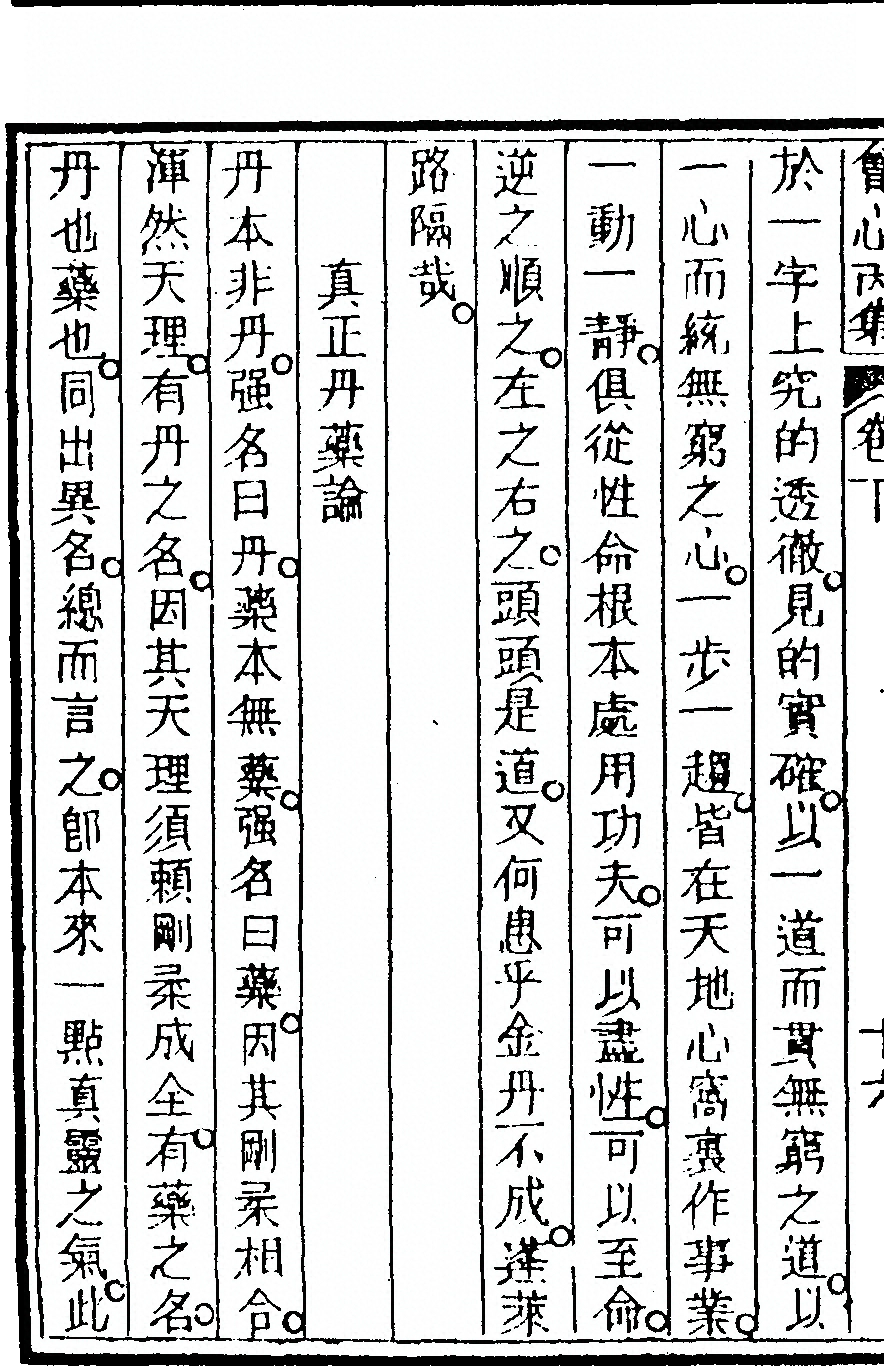 會心内集 卷下 十六
於一字上究的透徹。見的實確。以一道而貫無窮之道。以
一心而統無窮之心。一步一趨。皆在天地心窩裏作事業。
一動一靜。俱從性命根本處用功夫。可以盡性。可以至命。
逆之順之。左之右之。頭頭是道。又何患乎金丹不成。蓬萊
路隔哉。
真正丹藥論
丹本非丹。强名曰丹。藥本無藥。强名曰藥。因其剛柔相合。
渾然天理。有丹之名。因其天理須賴剛柔成全。有藥之名。
丹也藥也。同出異名。總而言之。卽本來一點真靈之氣。此